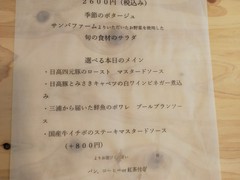 2600円(税込み)
季節のポタージュ
サンバファームよりいただいたお野菜を使用した
旬の食材のサラダ
選べる本日のメイン
・日高四元豚のロースト マスタードソース
・日高豚とみさきキャベツの白ワインビネガー煮込み
・三浦から届いた鮮魚のポワレ ブールブランソース
・国産牛イチボのステーキマスタードソース
(+800円)
パン、コーヒー or 紅茶付き